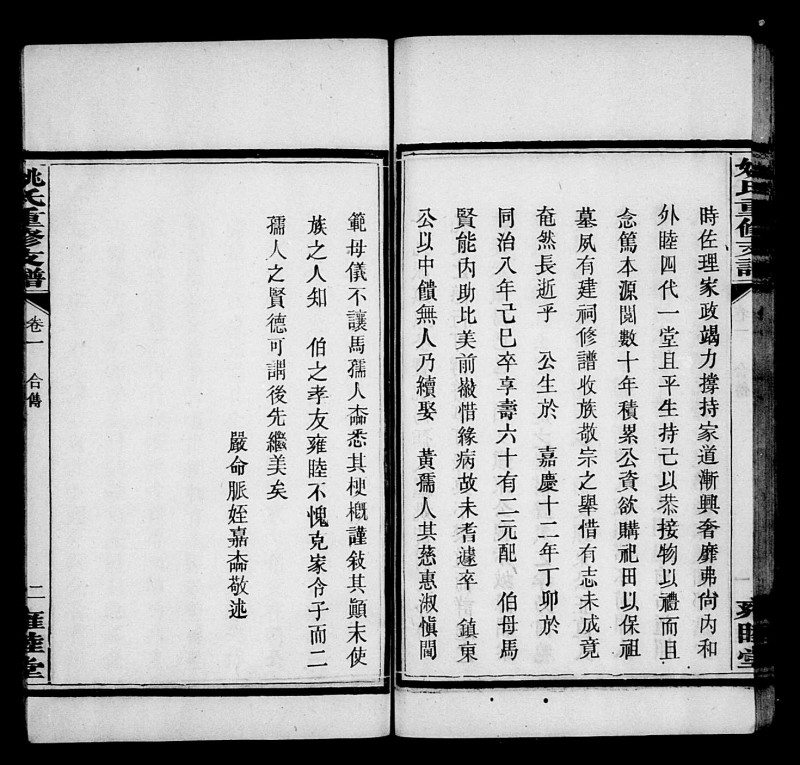 姚氏重修支譜
雍睦堂
時佐理家政竭力撐持家道漸興奢靡弗尙內和
外睦四代一堂且平生持己以恭接物以禮而且
念篤本源閱數十年積累公資欲購祀田以保祖
墓夙有建祠修譜收族敬宗之舉惜有志未成竟
奄然長逝乎 公生於 嘉慶十二年丁卯於
同治八年己巳卒享壽六十有二元配 伯母馬
賢能內助比美前徽惜緣病故未耆遽卒 鎮東
公以中饋無人乃續娶 黃孺人其慈惠淑愼閫
範母儀不讓馬孺人崙悉其梗概謹敍其顚末使
族之人知 伯之孝友雍睦不愧克家令子而二
孺人之賢德可謂後先繼美矣
嚴命脈姪嘉崙敬述
姚氏重修支譜 卷一 合傳 二 雍睦堂